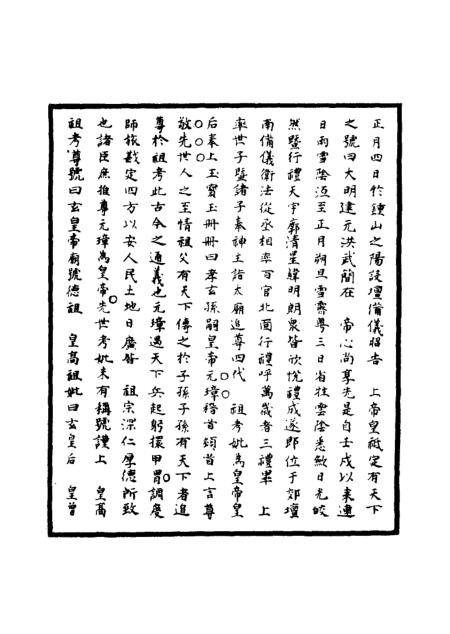 正月四日於鍾山之陽設壇備儀昭告　上帝皇祇定有天下
之號曰大明建元洪武簡在　帝心尚享先是自壬戌以來連
日雨雪陰沍至正月朔旦雪霽粵三日省牲雲陰悉斂日光皎
然暨行禮天宇廓清星緯明朗衆皆欣悅禮成遂即位于郊壇
南備儀衛法從丞相率百官北面行禮呼萬歲者三禮畢　上
率世子暨諸子奉神主詣太廟追尊四代　祖考妣為皇帝皇
后奉上玉寶玉冊冊曰孝玄孫嗣皇帝元璋稽首頓首上言尊
敬先世人之至情祖父有天下傳之於子孫子孫有天下者追
尊於祖考此古今之通義也元璋遇天下兵起躬擐甲冑調度
師旅戡定四方以安人民土地日廣皆　祖宗深仁厚德所致
也諸臣庶推尊元璋為皇帝先世考妣未有稱號謹上　皇高
祖考尊號曰玄皇帝廟號德祖　皇高祖妣曰玄皇后　皇曾